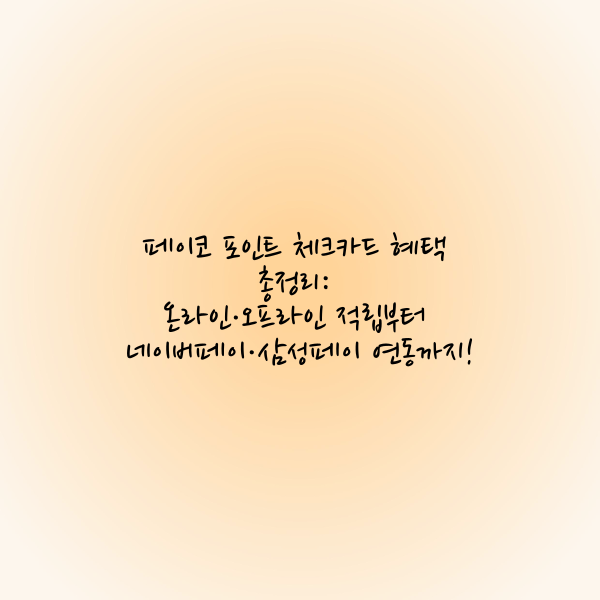 페이코 포인트 체크카드 혜택
총정리:
온라인·오프라인 적립부터
네이버페이·삼성페이 연동까지!